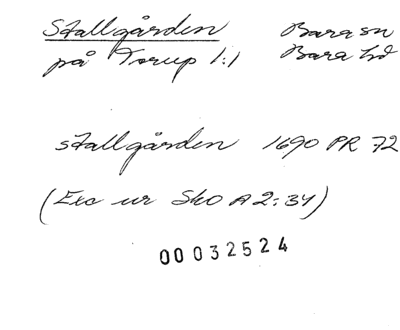 Stallgården Bara sn
på Torup 1:1 Bara hd
stallgården 1690 PR 72
(Exc ur Sko A 2:34)
00032524